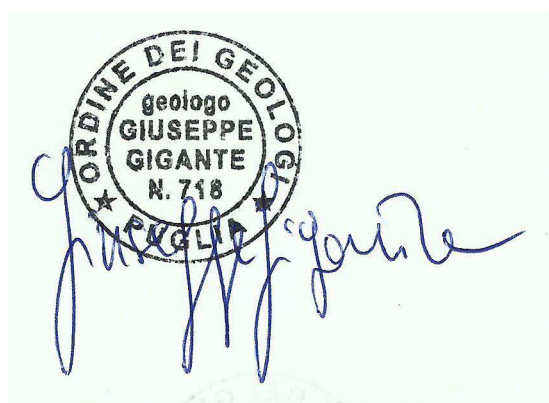 ORDINE DEI GEOLOGI
geologo
GIUSEPPE
GIGANTE
N. 718
PUGLIA
Giuseppe Gigante